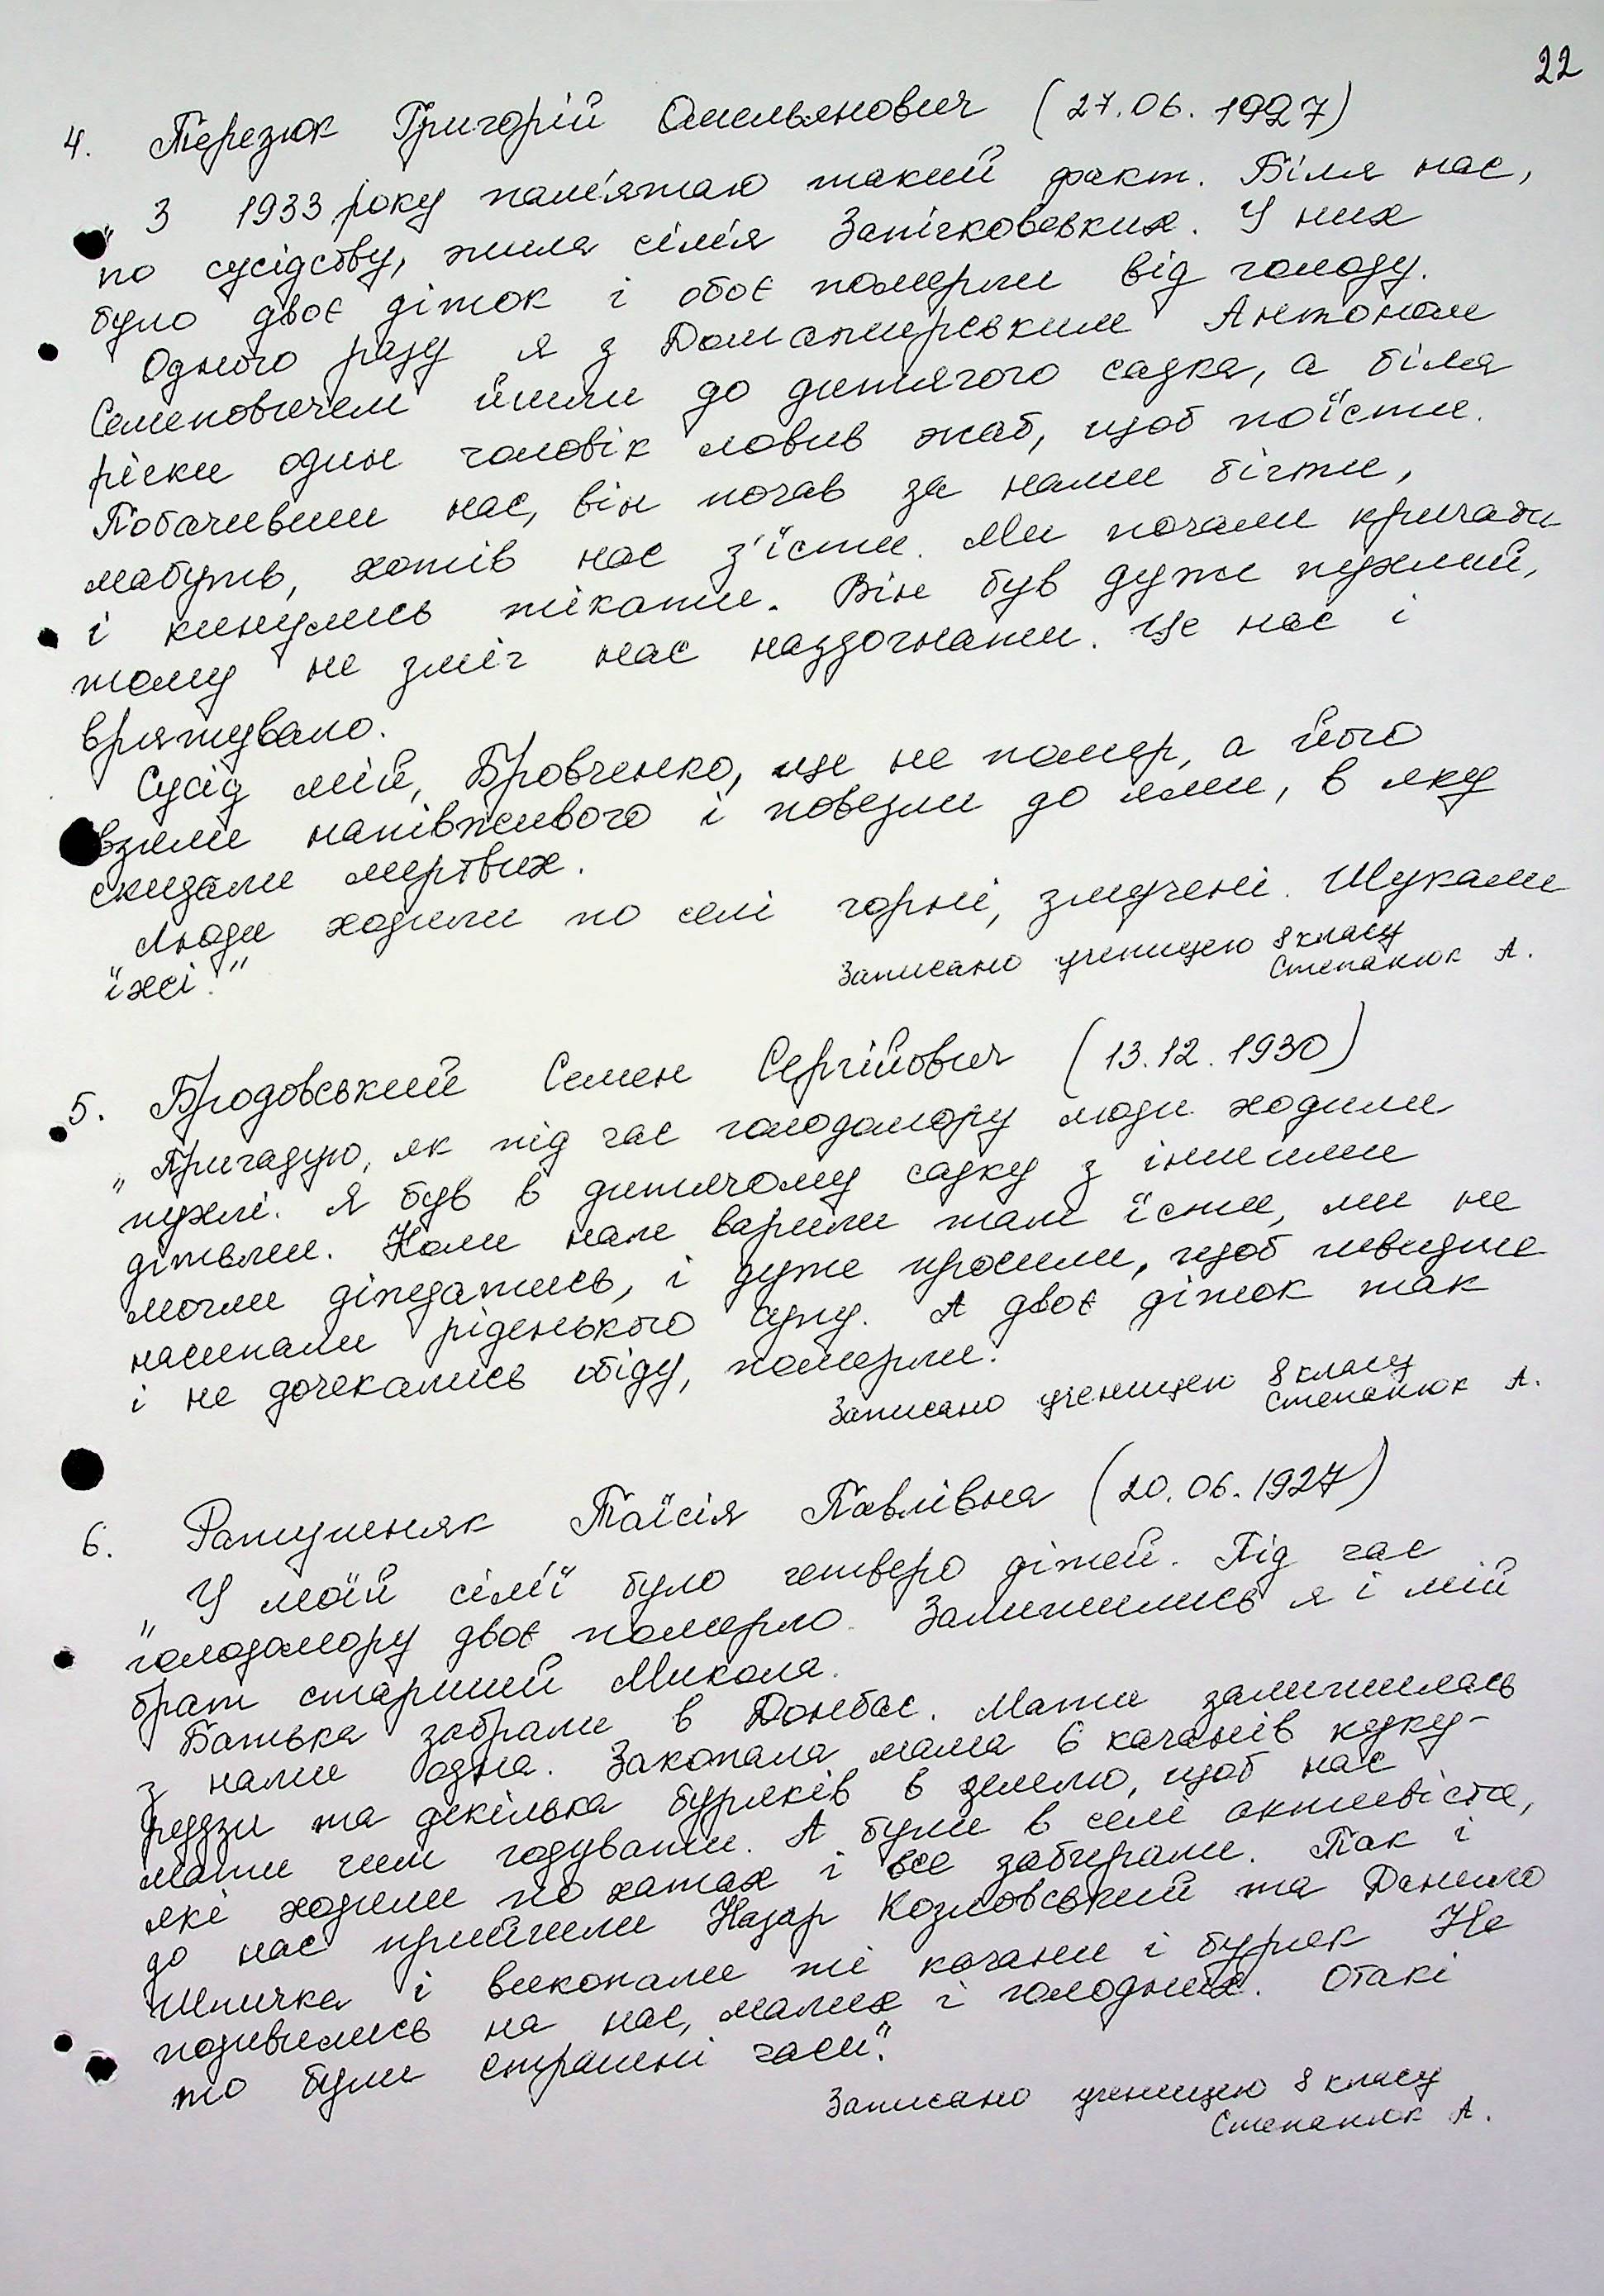 22
4. Терезюк Григорій Омельянович (27.06.1927)
„З 1933 року пам'ятаю такий факт. Біля нас,
по сусідству, жила сім'я Запічковських. У них
було двоє діток і обоє померли від голоду.
Одного разу я з Домашперським Антоном
Семеновичем йшли до дитячого садка, а біля
річки один чоловік ловив жаб, щоб поїсти.
Побачивши нас, він почав за нами бігти,
мабуть, хотів нас з'їсти. Ми почали кричати
і кинулись тікати. Він був дуже пухлий,
тому не зміг нас наздогнати. Це нас і
врятувало.
Сусід мій, Бровченко, ще не помер, а його
взяли напівживого і повезли до ями, в яку
скидали мертвих.
Люди ходили по селі чорні, змучені. Шукали
їжі."
Записано ученицею 8 класу
Степанюк А.
5. Бродовський Семен Сергійович (13.12.1930)
„Пригадую, як під час голодомору люди ходили
пухлі. Я був в дитячому садку з іншими
дітьми. Коли нам варили там їсти, ми не
могли діждатись, і дуже просили, щоб швидше
насипали ріденького супу. А двоє діток так
і не дочекались обіду, померли."
Записано ученицею 8 класу
Степанюк А.
6. Ратушняк Таїсія Павлівна (20.06.1927)
„У моїй сім'ї було четверо дітей. Під час
голодомору двоє померло. Залишились я і мій
брат старший Микола.
Батька забрали в Донбас. Мати залишилась
з нами одна. Закопала мама 6 качанів куку-
рудзи та декілька буряків в землю, щоб нас
мати чим годувати. А були в селі активісти,
які ходили по хатах і все забирали. Так і
до нас прийшли Назар Козловський та Данило
Шпичка і викопали ті качани і буряк Не
подивились на нас, малих і голодних. Отакі
то були страшні часи."
Записано ученицею 8 класу
Степанюк А.